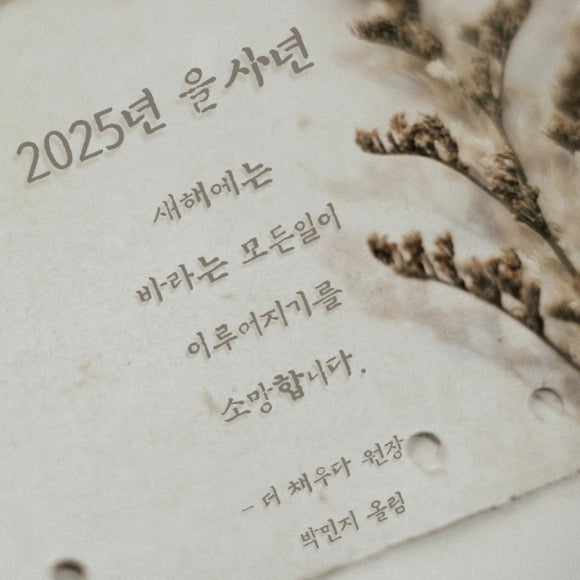 2025년 을사년
새해에는
바라는 모든일이
이루어지기를
소망합니다.
- 더 채우다 원장
박민지 올림